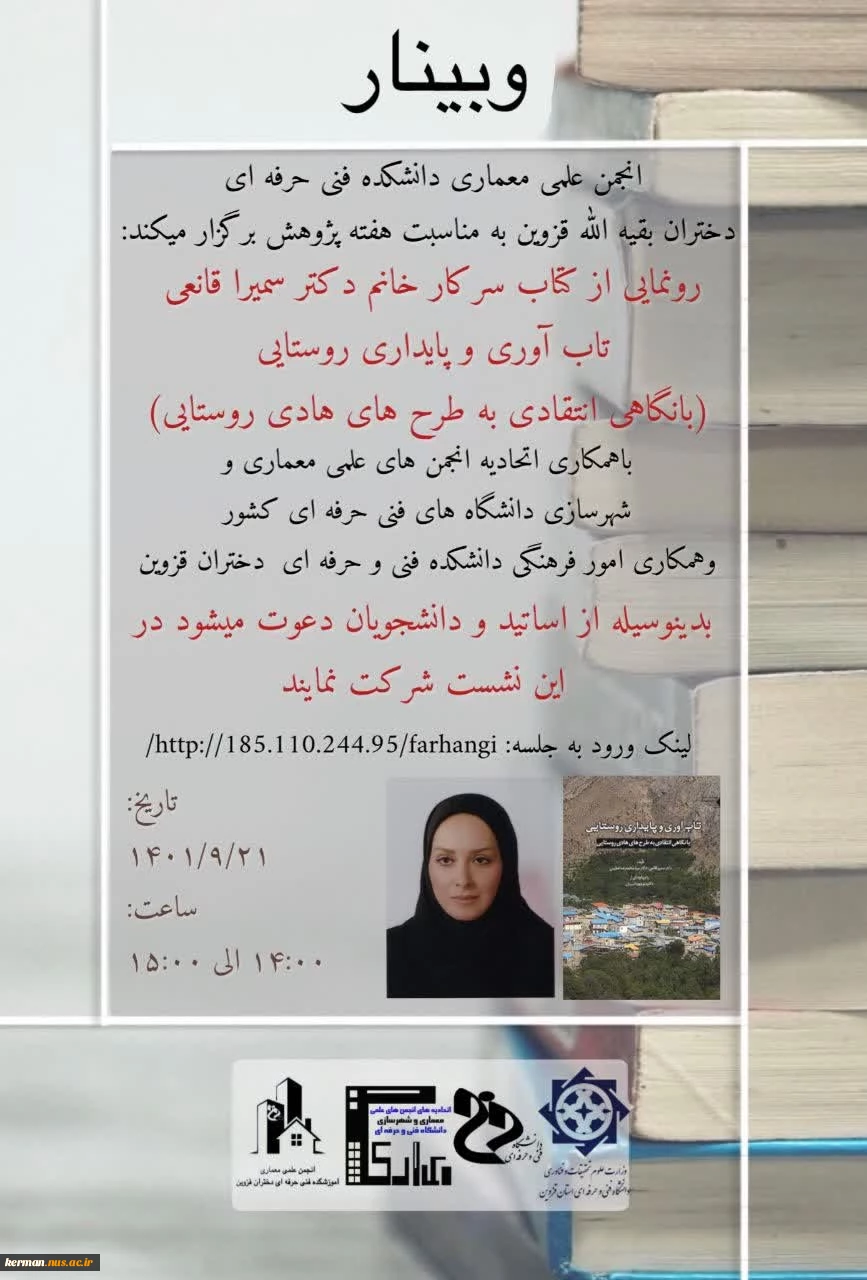 وبینار
انجمن علمی معماری دانشکده فنی حرفه ای
دختران بقیه الله قزوین به مناسبت هفته پژوهش برگزار میکند:
رونمایی از کتاب سرکار خانم دکتر سمیرا قانعی
تاب آوری و پایداری روستایی
(بانگاهی انتقادی به طرح های هادی روستایی)
باهمکاری اتحادیه انجمن های علمی معماری و
شهرسازی دانشگاه های فنی حرفه ای کشور
وهمکاری امور فرهنگی دانشکده فنی و حرفه ای دختران قزوین
بدینوسیله از اساتید و دانشجویان دعوت میشود در
این نشست شرکت نمایند
لینک ورود به جلسه: http://185.110.244.95/farhangi/
تاریخ:
۱۴۰۱/۹/۲۱
ساعت:
۱۴:۰۰ الی ۱۵:۰۰
تاب آوری و پایداری روستایی
بانگاهی انتقادی به طرح های هادی روستایی
دانشگاه
فنی و حرفه ای
وزارت علوم تحقیقات و فناوری
دانشگاه فنی و حرفه ای استان قزوین
اتحادیه های انجمن های علمی
معماری و شهرسازی
دانشگاه فنی و حرفه ای
معماری
انجمن علمی معماری
آموزشکده فنی حرفه ای دختران قزوین
kerman.nus.ac.ir